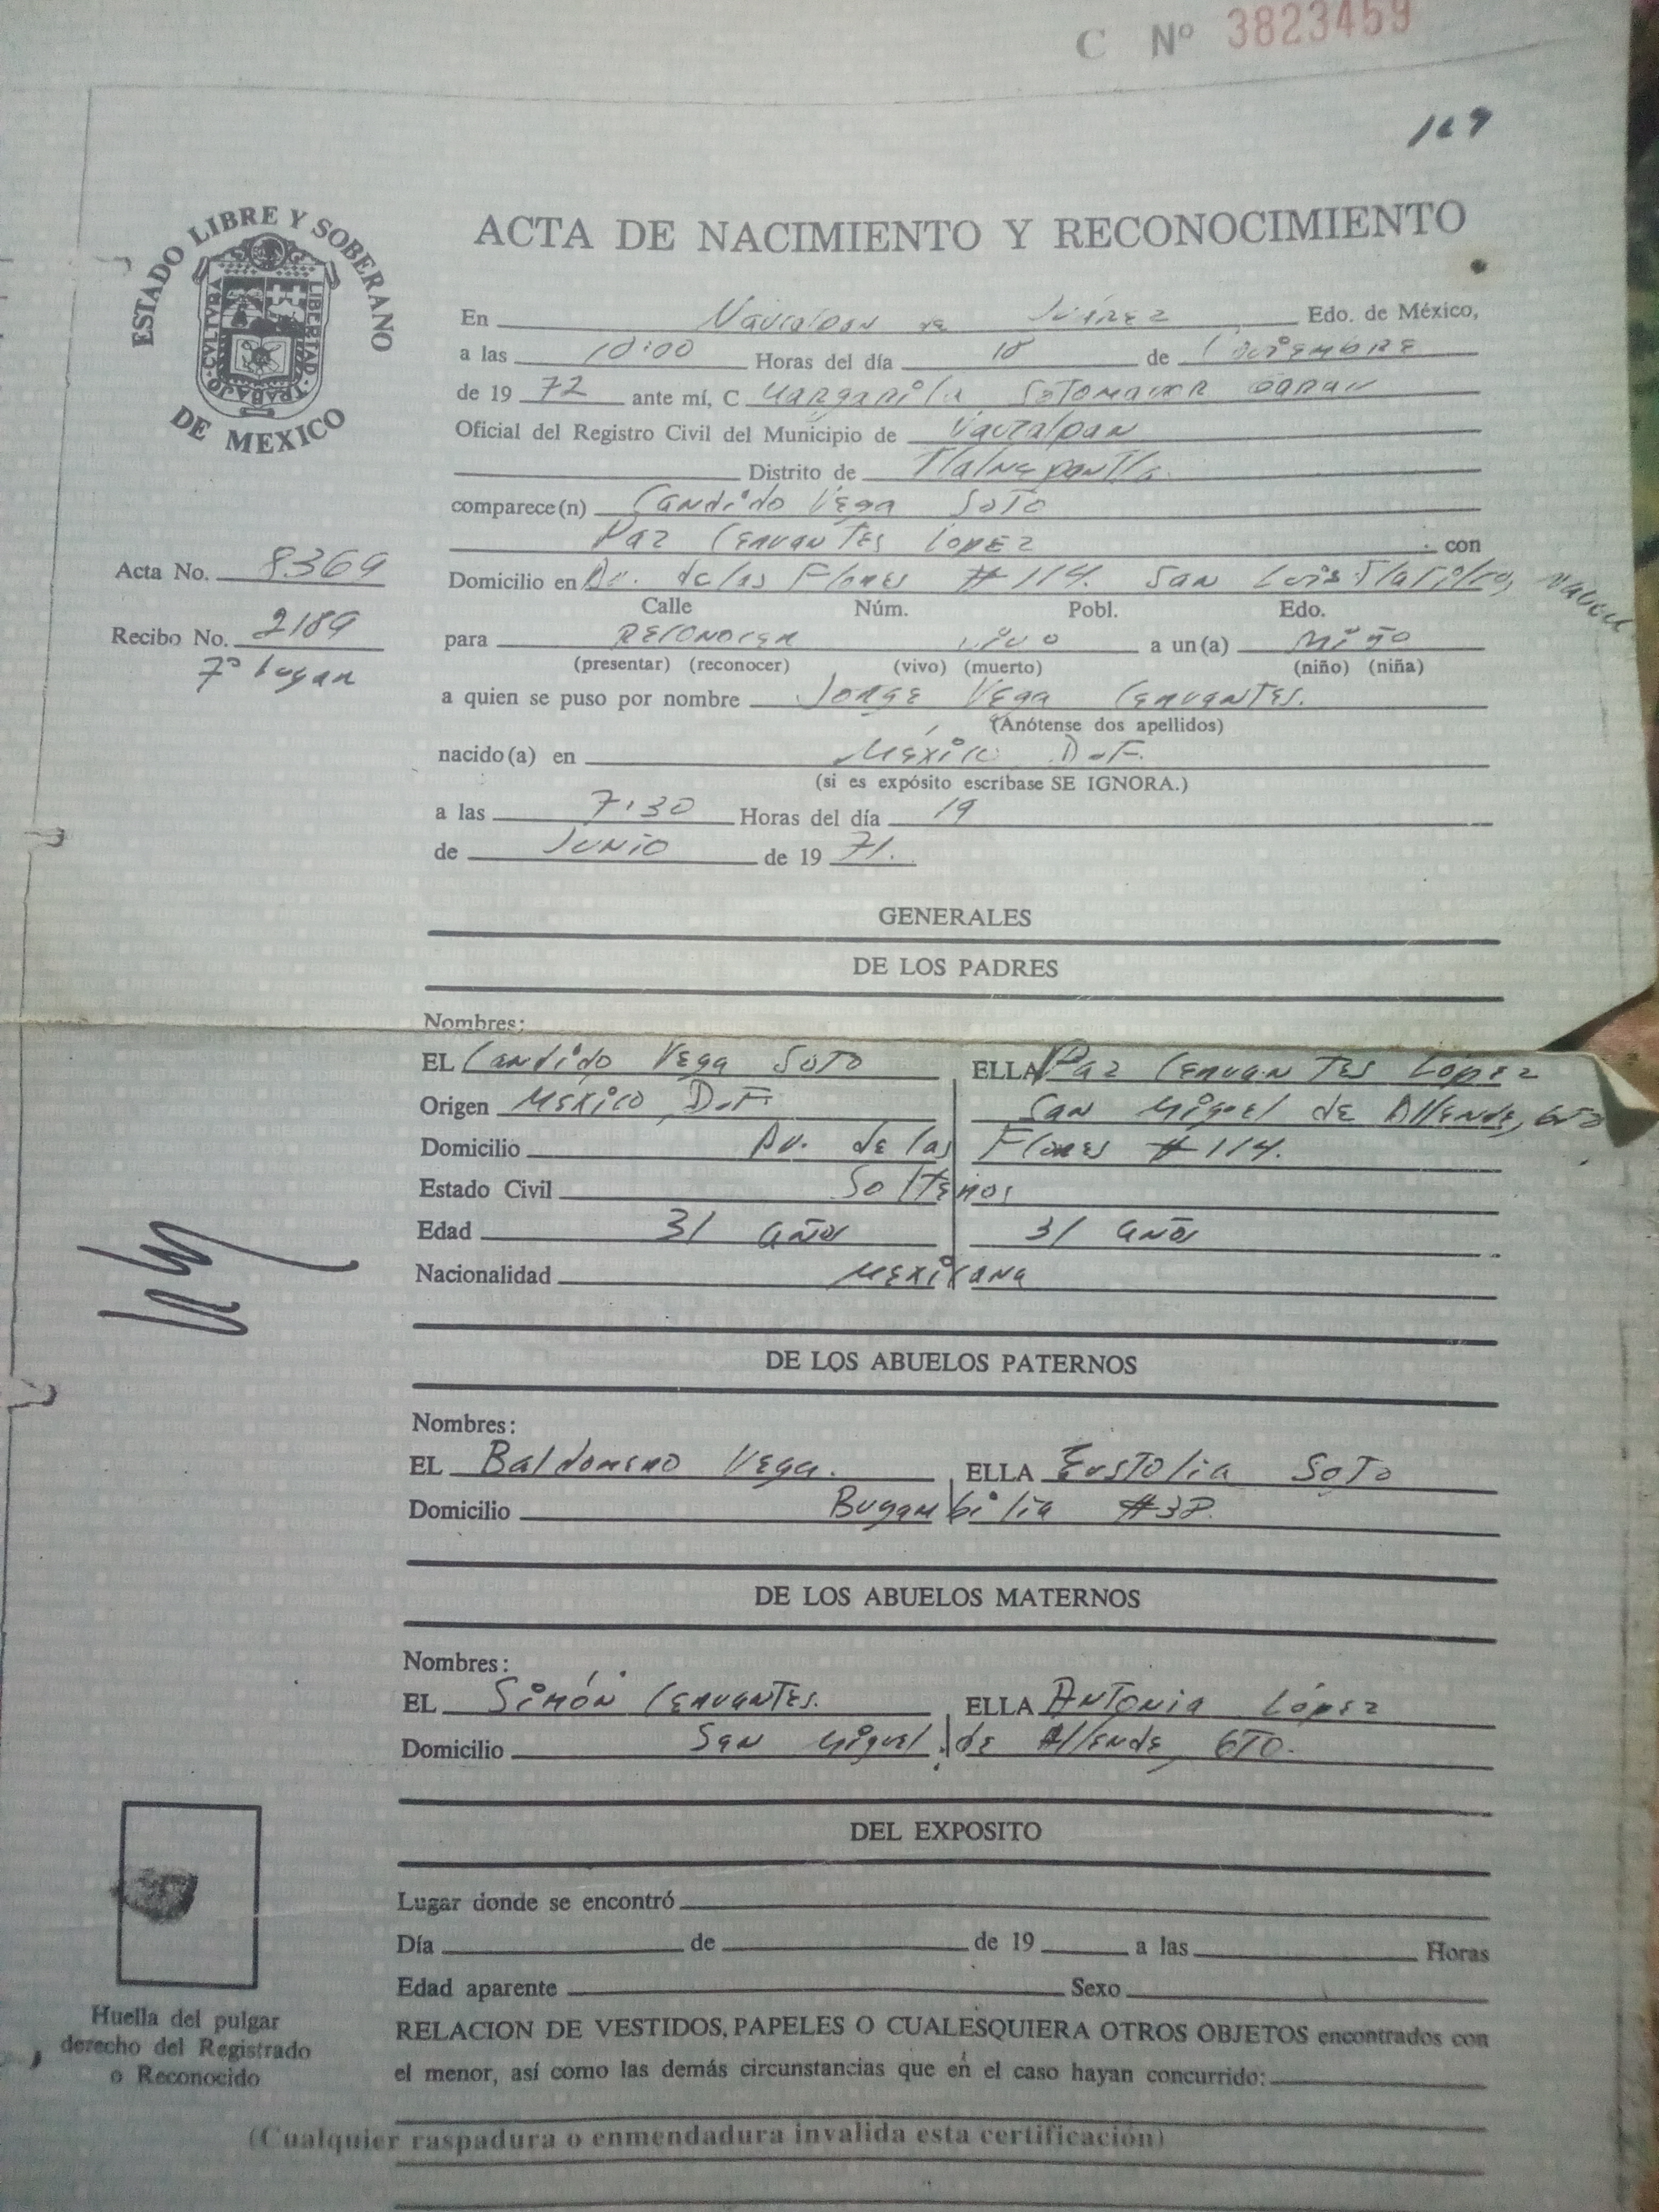 C Nº 3823459
169
ESTADO LIBRE Y SOBERANO
DE MEXICO
CVLTVRA TRABAJO LIBERTAD
ACTA DE NACIMIENTO Y RECONOCIMIENTO
En Naucalpan de Juárez Edo. de México,
a las 10:00 Horas del día 18 de Diciembre
de 19 72 ante mí, C Margarita Sotomayor
Oficial del Registro Civil del Municipio de Naucalpan
Distrito de Tlalnepantla.
comparece(n) Candido Vega Soto
Paz Cervantes Lopez con
Acta No. 8369
Domicilio en Av. de las Flores # 114. San Luis Tlatilco,
Calle Núm. Pobl. Edo.
Recibo No. 2189
7º bugan
para Reconocer vivo a un(a) niño
(presentar) (reconocer) (vivo) (muerto) (niño) (niña)
a quien se puso por nombre Jorge Vega Cervantes.
(Anótense dos apellidos)
nacido(a) en México D.F.
(si es expósito escríbase SE IGNORA.)
a las 7:30 Horas del día 19
de Junio de 19 71.
GENERALES
DE LOS PADRES
Nombres:
EL Candido Vega Soto ELLA Paz Cervantes López
Origen México, D.F. San Miguel de Allende, Gto
Domicilio Av. de las Flores # 114.
Estado Civil Solteros
Edad 31 años 31 años
Nacionalidad Mexicana
DE LOS ABUELOS PATERNOS
Nombres:
EL Baldomero Vega. ELLA Eustolia Soto
Domicilio Bugambilia #38.
DE LOS ABUELOS MATERNOS
Nombres:
EL Simón Cervantes. ELLA Antonia López
Domicilio San Miguel de Allende, GTO.
DEL EXPOSITO
Lugar donde se encontró
Día de de 19 a las Horas
Edad aparente Sexo
Huella del pulgar
derecho del Registrado
o Reconocido
RELACION DE VESTIDOS, PAPELES O CUALESQUIERA OTROS OBJETOS encontrados con
el menor, así como las demás circunstancias que en el caso hayan concurrido:
(Cualquier raspadura o enmendadura invalida esta certificación)